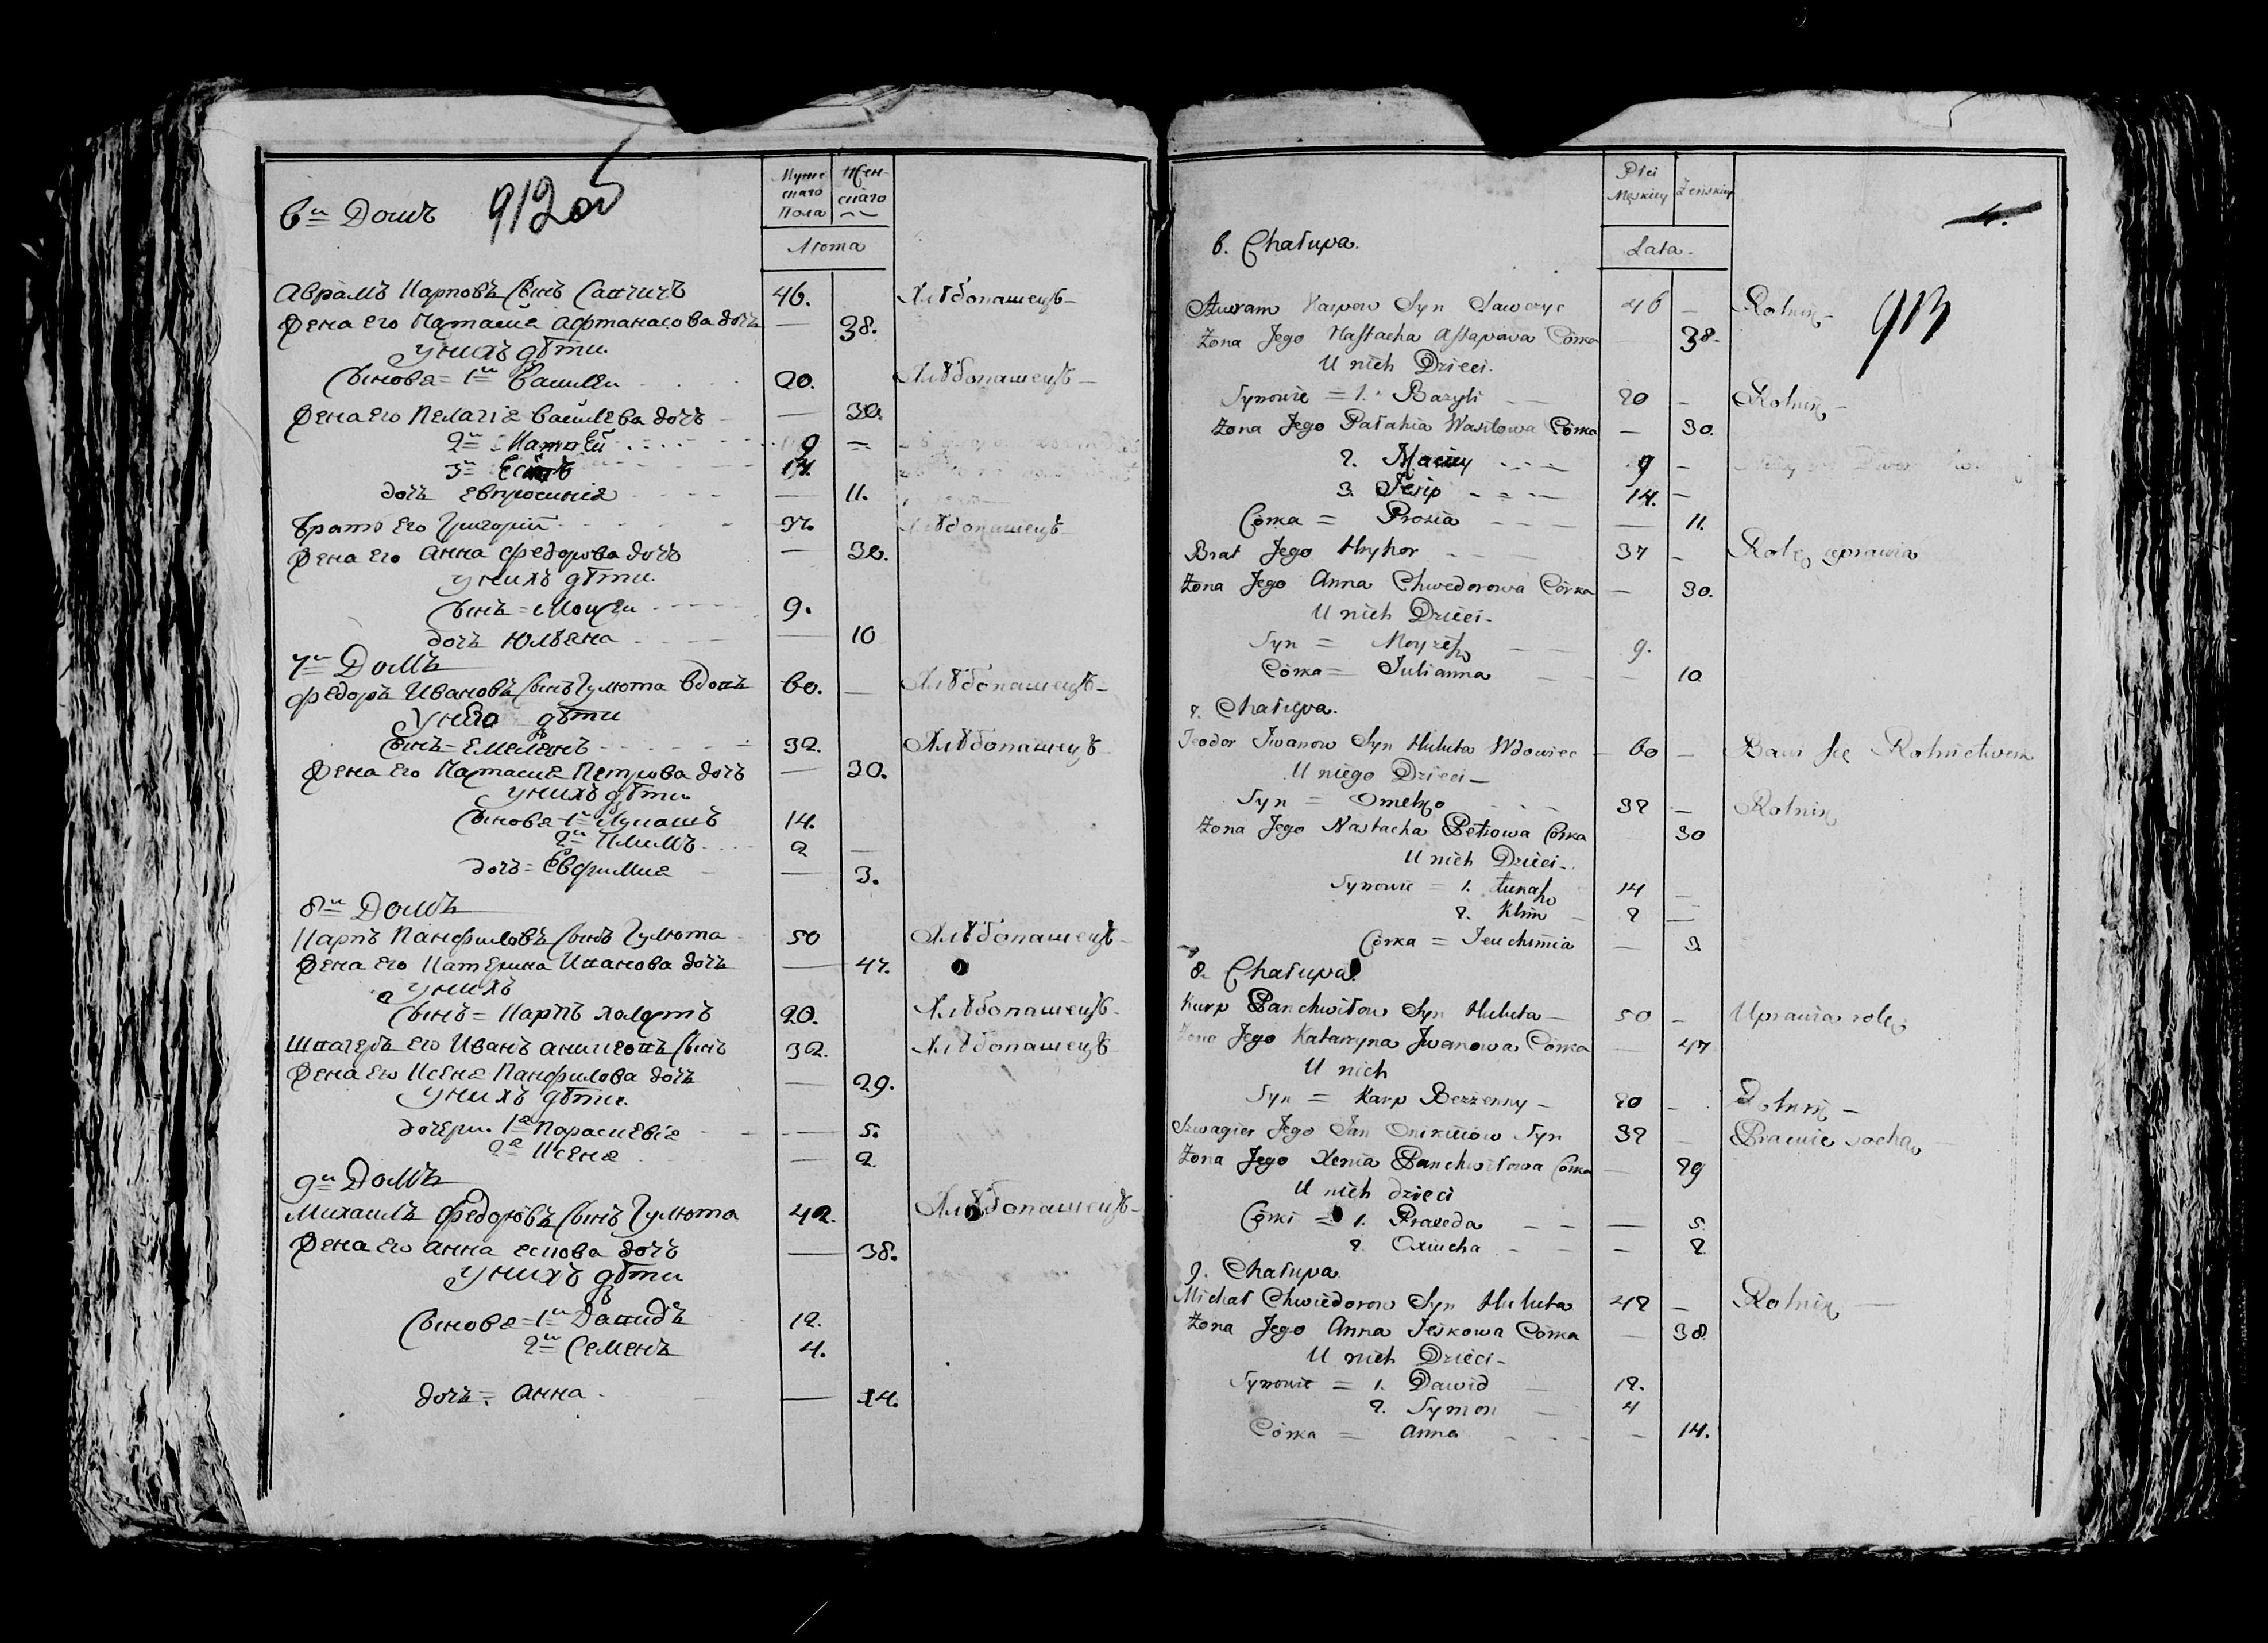 912 об
Мужескаго Пола
Женскаго
Лѣта
6й Домъ
Аврамъ Карповъ сынъ Савчичъ 46. Хлѣбопашецъ
Жена его Настасия Афтанасова дочь — 38.
у нихъ дѣти.
Сынова = 1й Василеи 20. Хлѣбопашецъ
Жена его Пелагія Васильева дочь — 30.
2й Матвѣй 9 —
3й 14.
дочь Евпросиния — 11.
Братъ его Григорій 37. Хлѣбопашецъ
Жена его Анна Федорова дочь — 30.
у нихъ дѣти.
Сынъ = Мойсеи 9.
дочь Юльяна — 10
7й Домъ
Федоръ Ивановъ Сынъ Гулюта вдовъ 60. — Хлѣбопашецъ
У него дѣти
Сынъ = Емельянъ 32. Хлѣбопашецъ
Жена его Настасия Петрова дочь — 30.
у нихъ дѣти
Сынова 1й Лукашъ 14.
2й Климъ 2 —
дочь = Евфимия — 3.
8й Домъ
Карпъ Панфиловъ Сынъ Гулюта 50 Хлѣбопашецъ
Жена его Катерина Иванова дочь — 47.
у нихъ
Сынъ = Карпъ холостъ 20. Хлѣбопашецъ
Швагеръ его Иванъ Аникеовъ Сынъ 32. Хлѣбопашецъ
Жена его Ксеня Панфилова дочь — 29.
у нихъ дѣти.
дочери. 1я Параскевія — 5.
2я Ксеня — 2.
9й Домъ
Михаилъ Федоровъ Сынъ Гулюта 42. Хлѣбопашецъ
Жена его Анна Ескова дочь — 38.
у нихъ дѣти
Сынова = 1й Давидъ 12.
2й Семенъ 4.
дочь = Анна — 14.
913
Płci Męskiey
Żeńskiey
Lata.
6. Chałupa.
Awram Karpow Syn Sawczyc 46 — Rolnik
Żona Jego Nastacha Astapowa Córka 38.
U nich Dzieci.
Synowie = 1. Bazyli 20 — Rolnik
Żona Jego Pałahia Wasilowa Córka — 30.
2. Maciey 9 —
3. Jesip 14. —
Córka = Prosia — 11.
Brat Jego Hryhor 37 — Rolę uprawia
Żona Jego Anna Chwedorowa Córka — 30.
U nich Dzieci
Syn = Moyzesz 9.
Córka = Julianna 10
7. Chałupa.
Teodor Jwanow Syn Huluta Wdowiec — 60 — Bawi się Rolnictwem
U niego Dzieci —
Syn = Omelko 32 — Rolnik
Żona Jego Nastacha Petrowa Córka 30
U nich Dzieci
Synowie = 1. Łukasz 14 —
2. Klim 2 —
Córka = Jeuchimia — 3
8. Chałupa
Karp Panchwiłow Syn Huluta — 50 — Uprawia rolę
Żona Jego Katarzyna Jwanowa Córka — 47
U nich
Syn = Karp Bezżenny — 20 — Rolnik —
Szwagier Jego Jan Onikiiow Syn 32 — Prawie sochą
Żona Jego Xenia Panchwiłowa Córka — 29
U nich dzieci
Córki = 1. Praxeda — 5.
2. Oxiucha — 2
9. Chałupa
Michał Chwiedorow Syn Huluta 42 — Rolnik —
Żona Jego Anna Jeskowa Córka — 38
U nich Dzieci
Synowie = 1. Dawid 12.
2. Symon 4
Córka = Anna — 14.